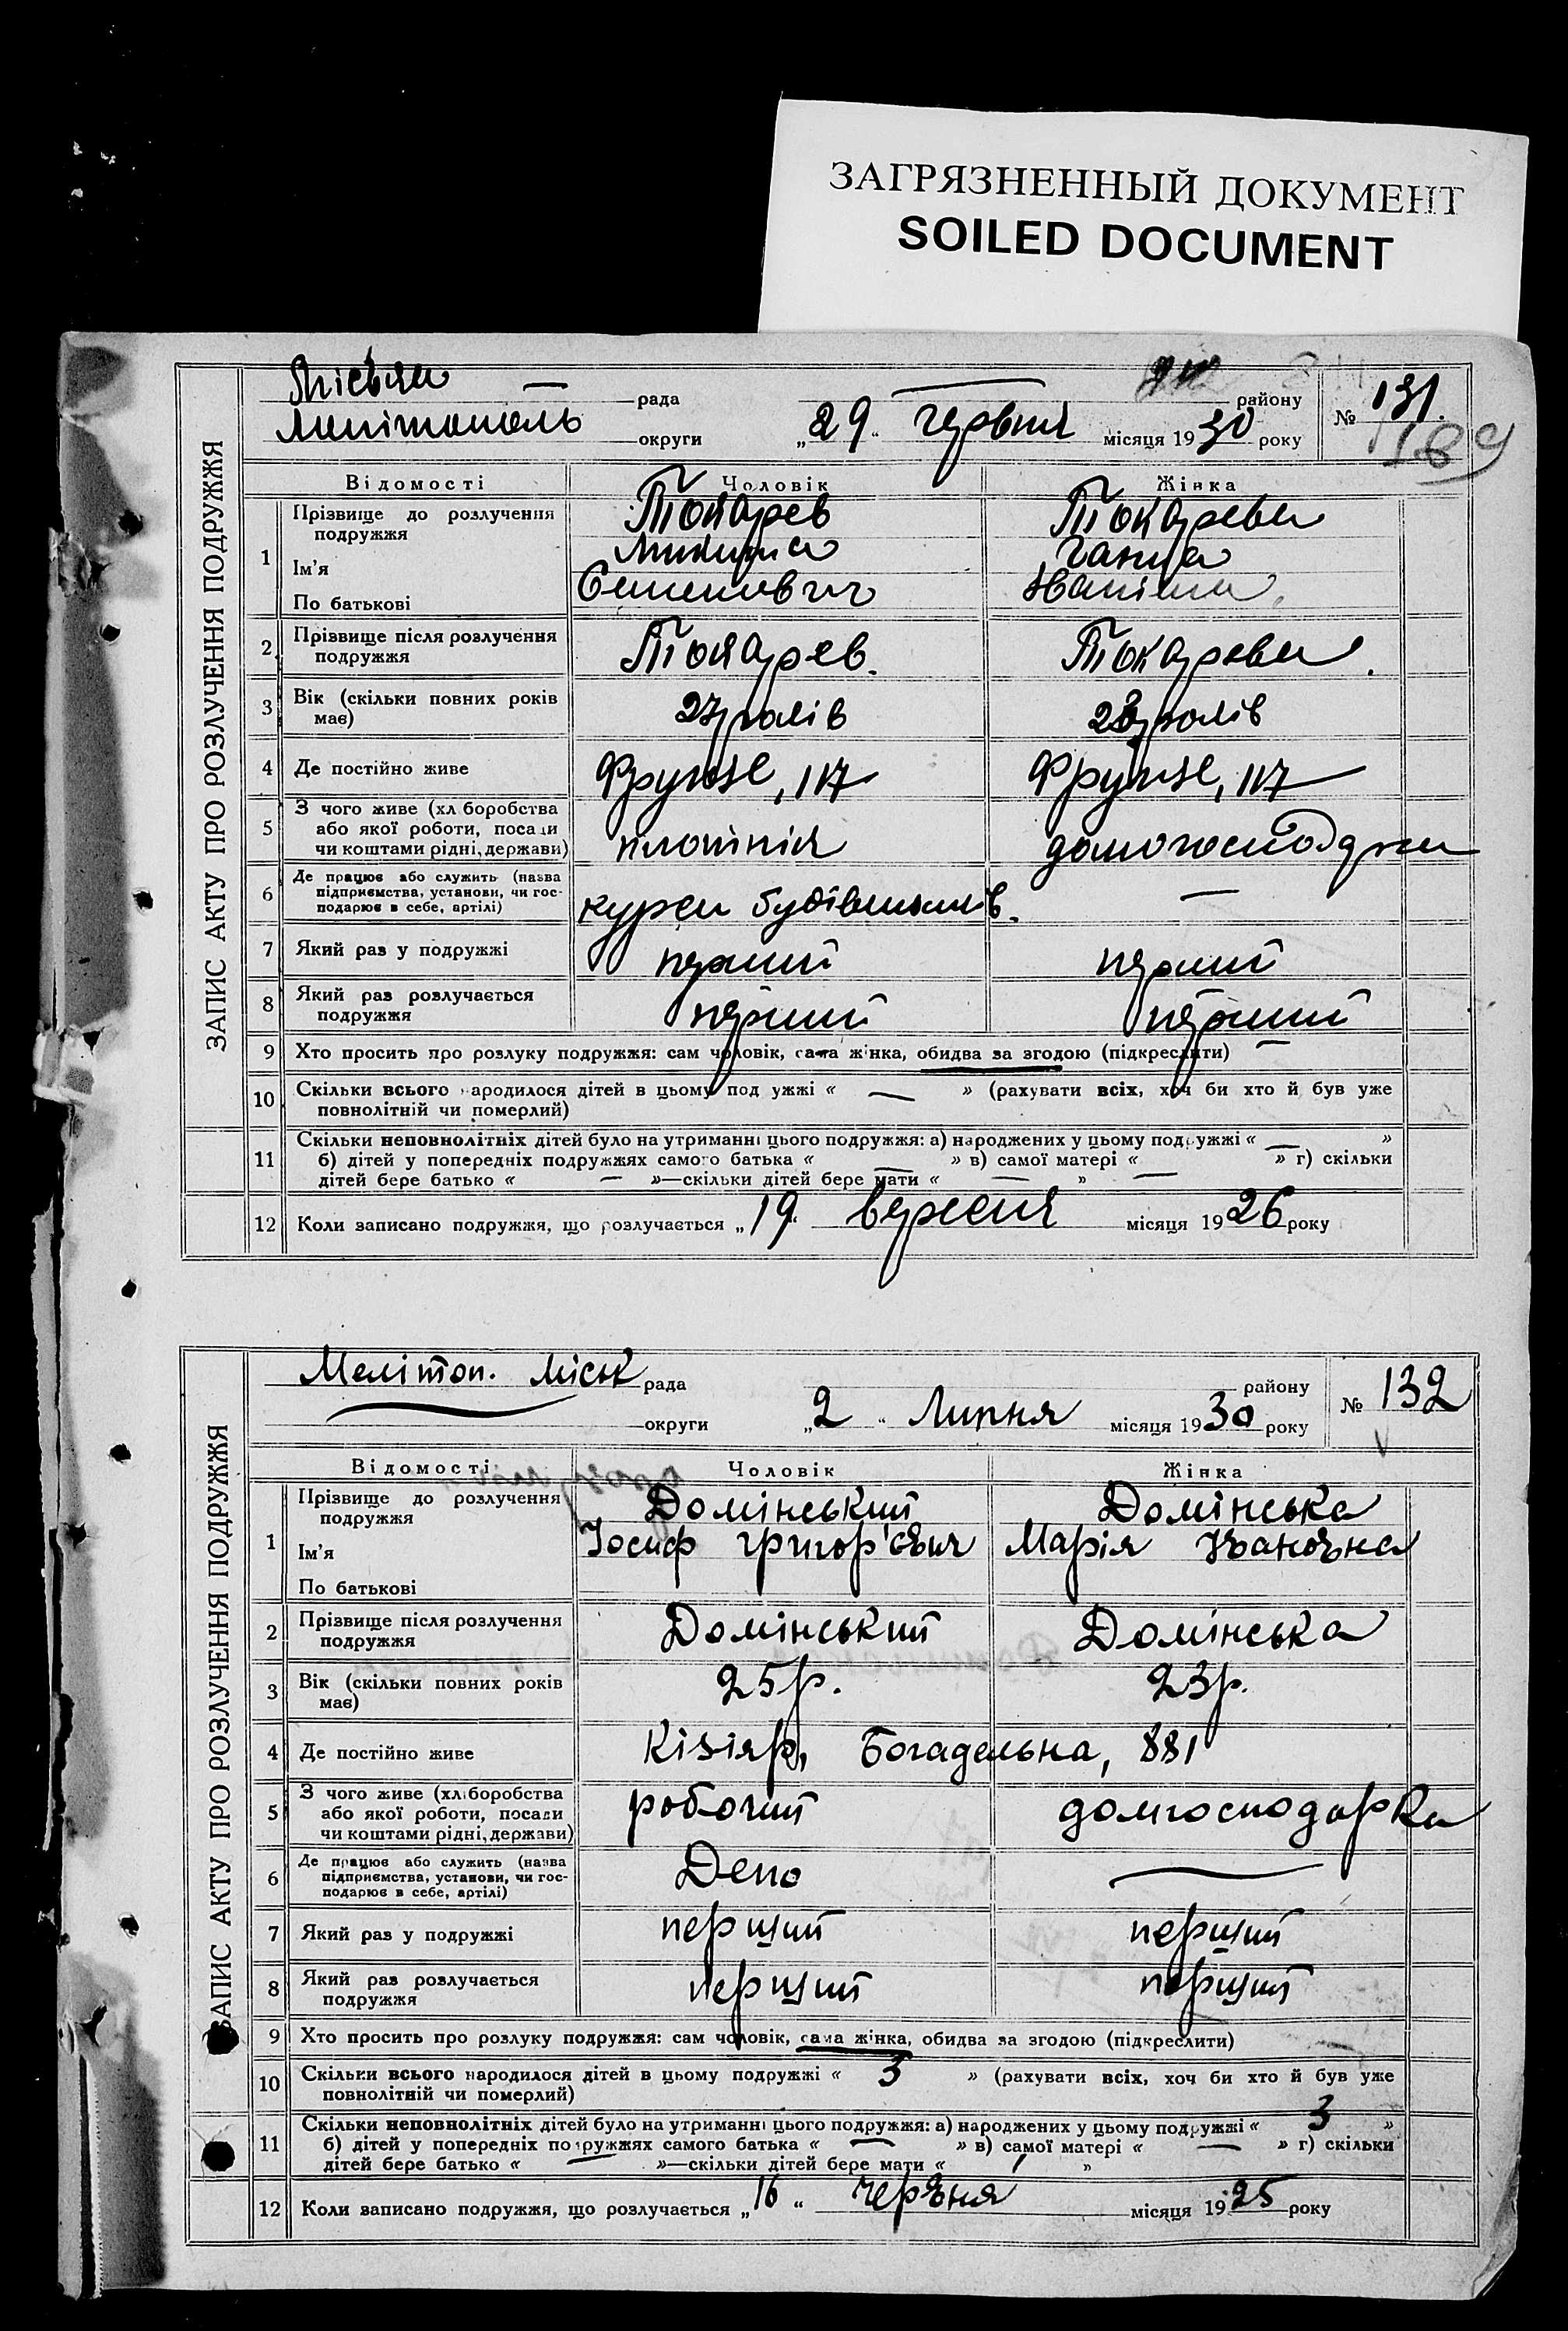 ЗАГРЯЗНЕННЫЙ ДОКУМЕНТ
SOILED DOCUMENT
ЗАПИС АКТУ ПРО РОЗЛУЧЕННЯ ПОДРУЖЖЯ
рада району № 131.
округи „29“ червня місяця 1930 року
189
Відомості Чоловік Жінка
1 Прізвище до розлучення подружжя Токарев Токарева
Ім'я Микита Ганна
По батькові Семенович Іванівна
2 Прізвище після розлучення подружжя Токарев. Токарева.
3 Вік (скільки повних років має) 27 років 23 років
4 Де постійно живе Фрунзе, 117 Фрунзе, 117
5 З чого живе (хліборобства
або якої роботи, посади
чи коштами рідні, держави)
6 Де працює або служить (назва
підприємства, установи, чи гос-
подарює в себе, артілі) курси будівельників. —
7 Який раз у подружжі перший перший
8 Який раз розлучається подружжя перший перший
9 Хто просить про розлуку подружжя: сам чоловік, сама жінка, обидва за згодою (підкреслити)
10 Скільки всього народилося дітей в цьому подружжі « — » (рахувати всіх, хоч би хто й був уже
повнолітній чи померлий)
11 Скільки неповнолітніх дітей було на утриманні цього подружжя: а) народжених у цьому подружжі « — »
б) дітей у попередніх подружжях самого батька « — » в) самої матері « — » г) скільки
дітей бере батько « — »—скільки дітей бере мати « — »
12 Коли записано подружжя, що розлучається „19“ вересня місяця 1926 року
ЗАПИС АКТУ ПРО РОЗЛУЧЕННЯ ПОДРУЖЖЯ
Мелітоп. міськ рада району № 132
округи „2“ Липня місяця 1930 року
Відомості Чоловік Жінка
1 Прізвище до розлучення подружжя Домінський Домінська
Ім'я Іосиф Григор'євич Марія Івановна
По батькові
2 Прізвище після розлучення подружжя Домінський Домінська
3 Вік (скільки повних років має) 25 р. 23 р.
4 Де постійно живе Кізіяр, Богадельна, 881
5 З чого живе (хліборобства
або якої роботи, посади
чи коштами рідні, держави) робочий домгосподарка
6 Де працює або служить (назва
підприємства, установи, чи гос-
подарює в себе, артілі) Депо —
7 Який раз у подружжі перщий перщий
8 Який раз розлучається подружжя перщий перщий
9 Хто просить про розлуку подружжя: сам чоловік, сама жінка, обидва за згодою (підкреслити)
10 Скільки всього народилося дітей в цьому подружжі « 3 » (рахувати всіх, хоч би хто й був уже
повнолітній чи померлий)
11 Скільки неповнолітніх дітей було на утриманні цього подружжя: а) народжених у цьому подружжі « 3 »
б) дітей у попередніх подружжях самого батька « — » в) самої матері « — » г) скільки
дітей бере батько « — »—скільки дітей бере мати « »
12 Коли записано подружжя, що розлучається „16“ червня місяця 1925 року